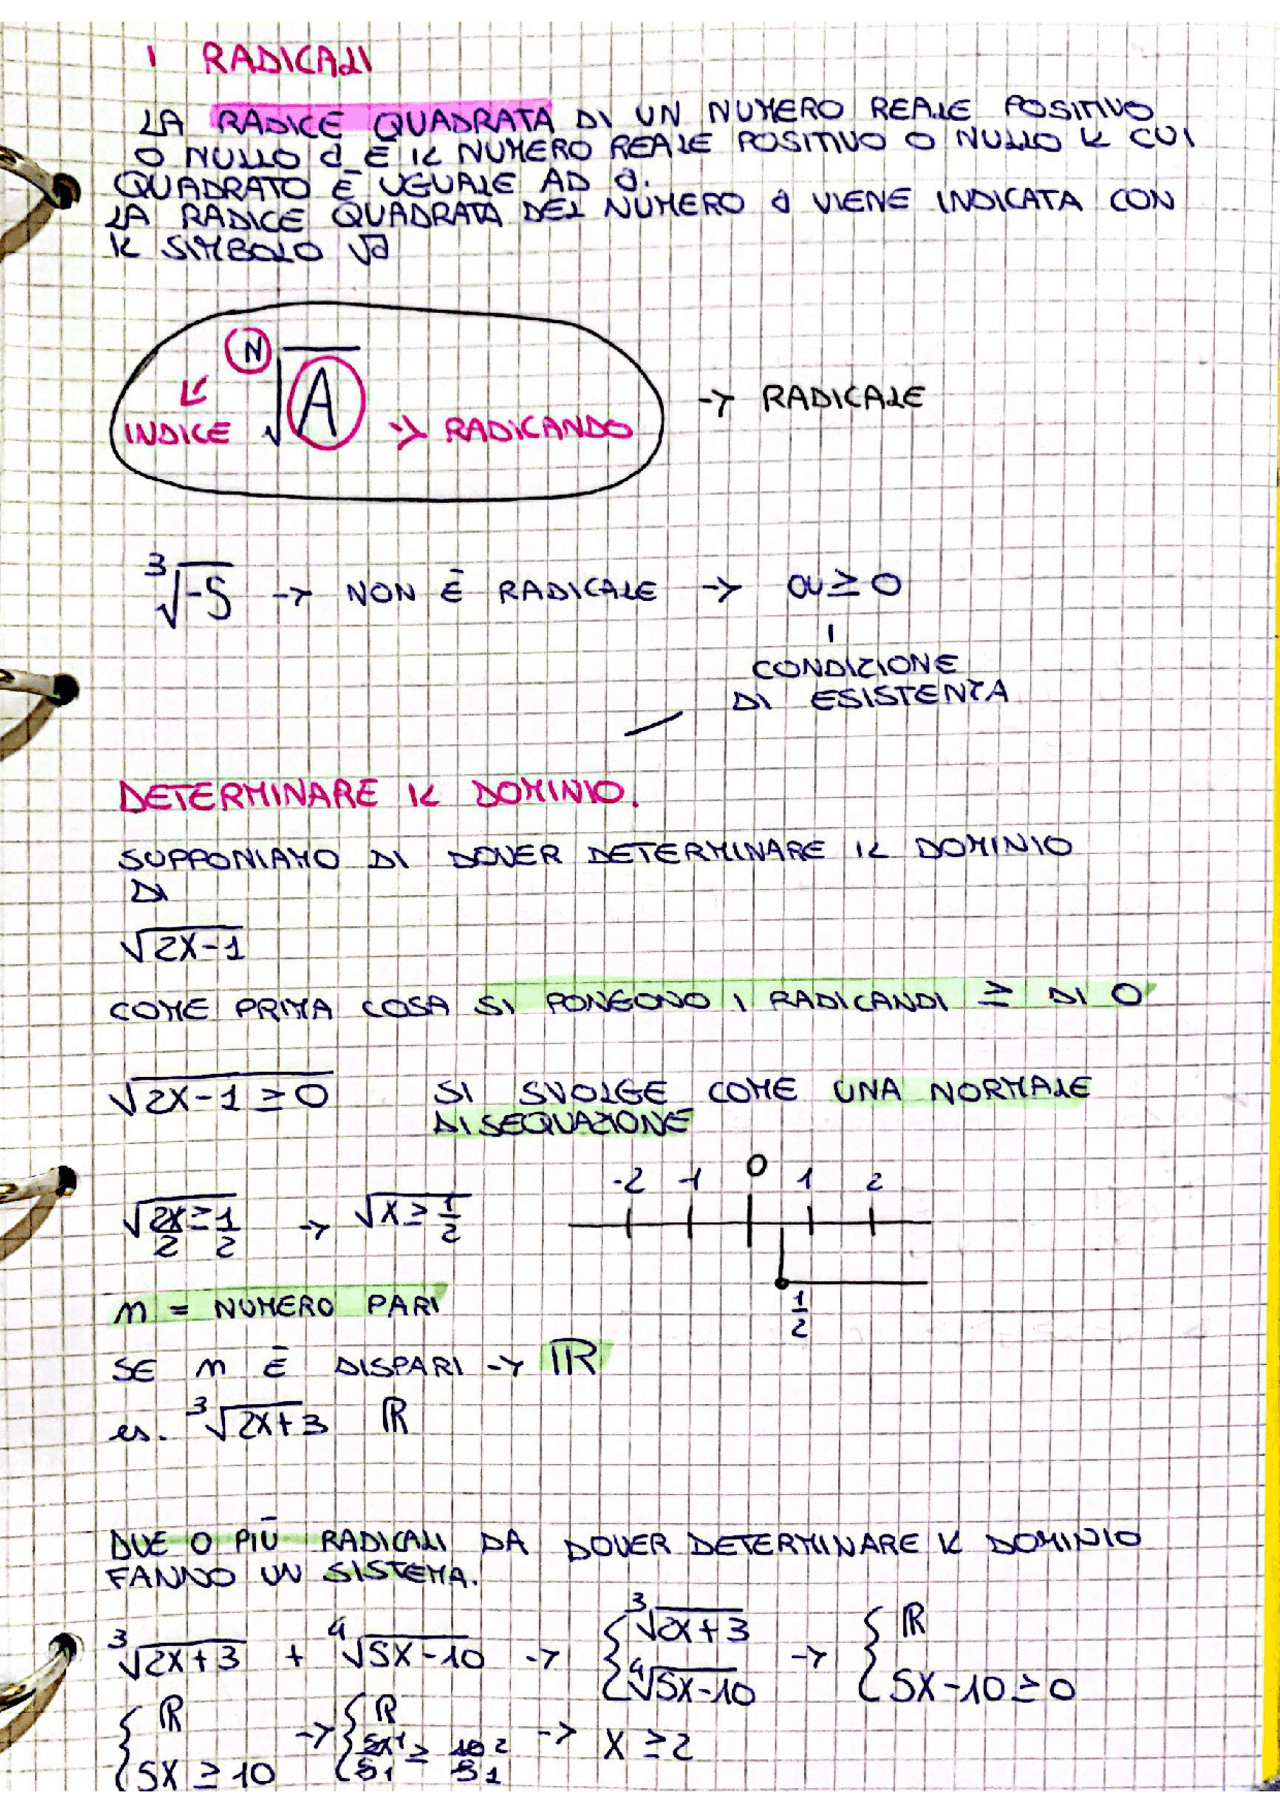 I RADICALI
LA RADICE QUADRATA DI UN NUMERO REALE POSITIVO
O NULLO a È IL NUMERO REALE POSITIVO O NULLO IL CUI
QUADRATO È UGUALE AD a.
LA RADICE QUADRATA DEL NUMERO a VIENE INDICATA CON
IL SIMBOLO √a
N√A
INDICE → RADICANDO → RADICALE
³√-5 → NON È RADICALE → a ≥ 0
CONDIZIONE
DI ESISTENZA
DETERMINARE IL DOMINIO.
SUPPONIAMO DI DOVER DETERMINARE IL DOMINIO
DI
√2X-1
COME PRIMA COSA SI PONGONO I RADICANDI ≥ DI 0
√2X-1≥0 SI SVOLGE COME UNA NORMALE
DISEQUAZIONE
-2 -1 0 1 2
√2X/2≥1/2 → √X≥1/2
1/2
m = NUMERO PARI
SE m È DISPARI → ℝ
es. ³√2X+3 ℝ
DUE O PIÙ RADICALI DA DOVER DETERMINARE IL DOMINIO
FANNO UN SISTEMA.
³√2X+3 + ⁴√5X-10 → { ³√2X+3 ⁴√5X-10 → { ℝ 5X-10≥0
{ ℝ 5X≥10 → { ℝ 5X¹/5₁ ≥ 10²/5₁ → X≥2